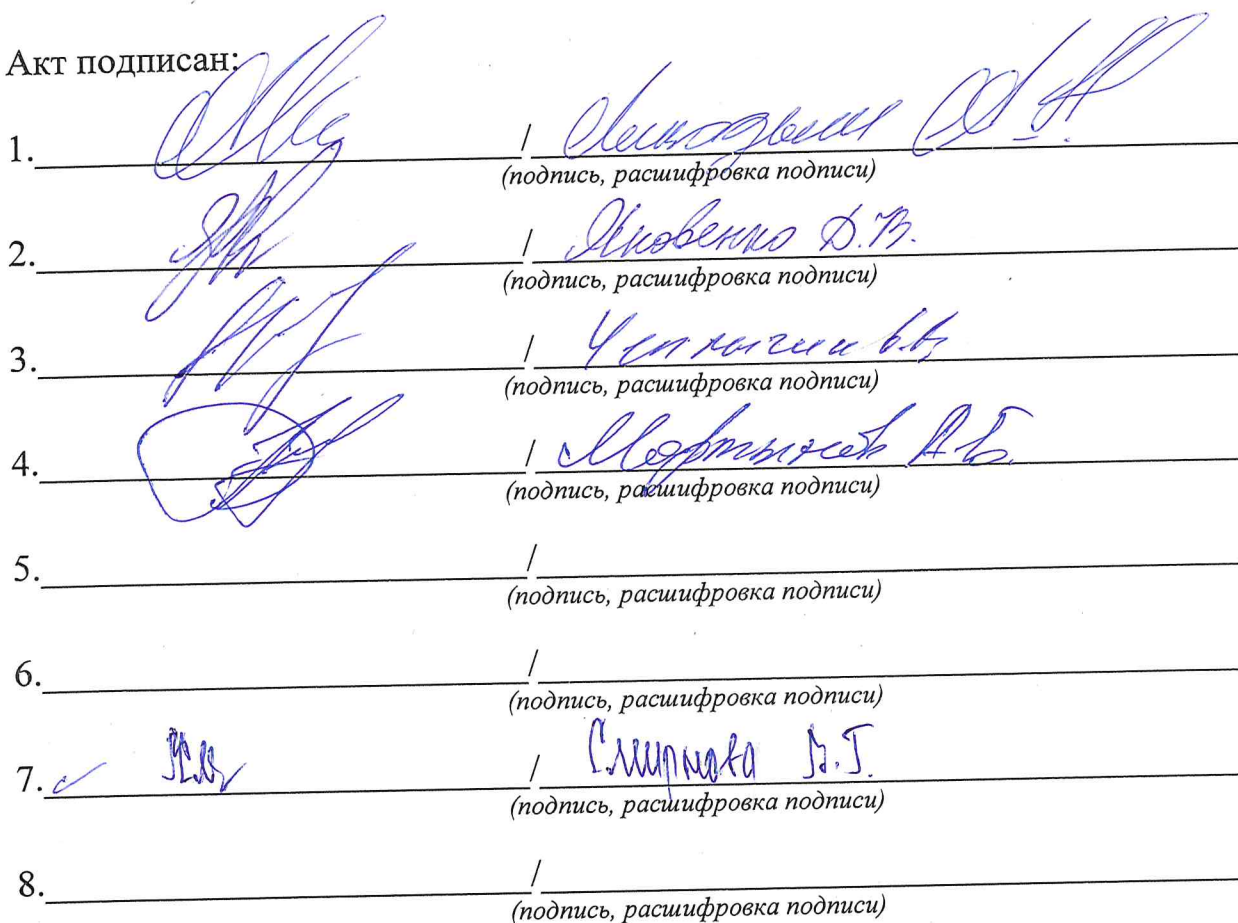 Акт подписан:
1. /
(подпись, расшифровка подписи)
2. / Яковенко Д.В.
(подпись, расшифровка подписи)
3. / Чеплыгин В.В.
(подпись, расшифровка подписи)
4. / Мартынов А.Б.
(подпись, расшифровка подписи)
5. /
(подпись, расшифровка подписи)
6. /
(подпись, расшифровка подписи)
7. / Смирнова В.Г.
(подпись, расшифровка подписи)
8. /
(подпись, расшифровка подписи)